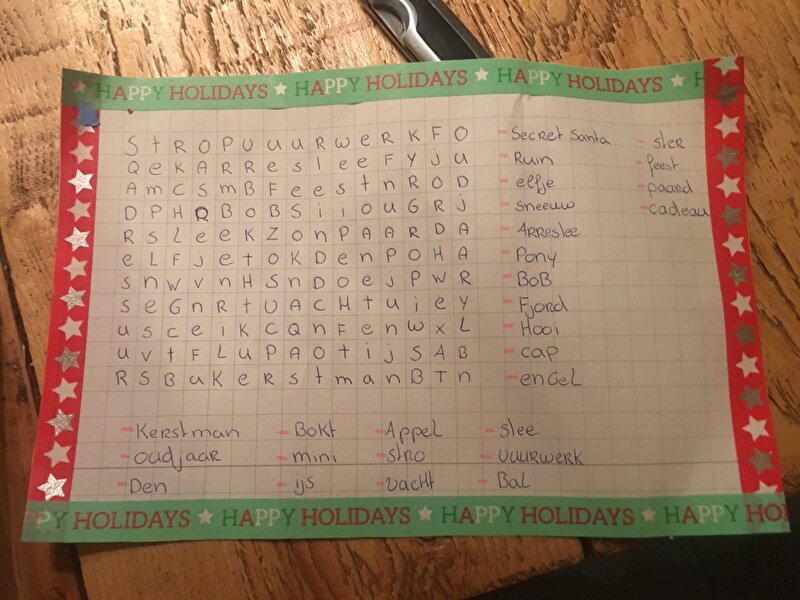 HAPPY HOLIDAYS ★ HAPPY HOLIDAYS ★ HAPPY HOLIDAYS ★ H
S t R O P V u u R w e R K F O
Q e K A R R e s l e e F Y j u
A m C S m B F e e s t n R O D
D P H R B O B S i i O u G R j
R S L e e K Z O n P A A R D A
e L F j e t O K D e n P O H A
S n w v n H S n D O e j P W R
S e G n R t U A C H t u i e Y
u s c e i K C Q n F e n w x L
u v t F L u P A O t i j S A B
R S B u K e R S t m a n B T n
- Secret Santa
- Ruin
- elfje
- sneeuw
- ARReslee
- Pony
- BoB
- Fjord
- Hooi
- cap
- enGel
- ster
- feest
- paard
- cadeau
- Kerstman
- oudjaar
- Den
- Bokt
- mini
- ijs
- Appel
- stro
- vacht
- slee
- vuurwerk
- Bal
PY HOLIDAYS ★ HAPPY HOLIDAYS ★ HAPPY HOLIDAYS ★ HAPPY HO